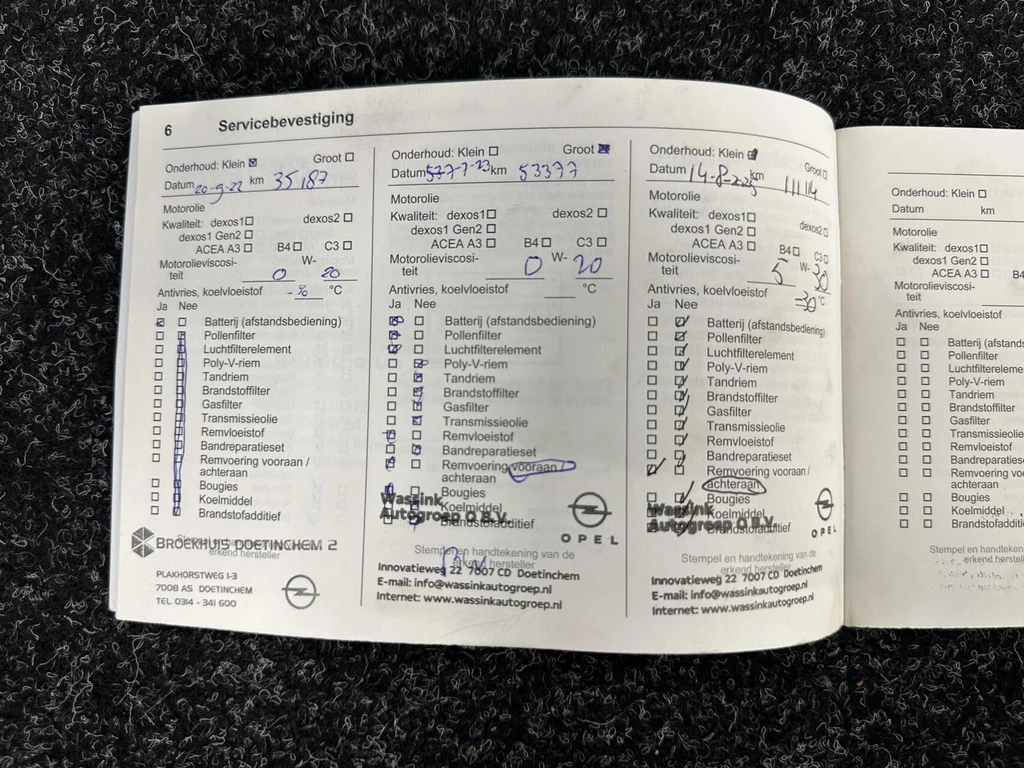 6 Servicebevestiging
Onderhoud: Klein ☒ Groot ☐
Datum 20-9-22 km 35187
Motorolie
Kwaliteit: dexos1☐ dexos2 ☐
dexos1 Gen2 ☐
ACEA A3 ☐ B4 ☐ C3 ☐
Motorolieviscosi-
teit 0 W- 20
Antivries, koelvloeistof °C
Ja Nee
☒ ☐ Batterij (afstandsbediening)
Pollenfilter
Luchtfilterelement
Poly-V-riem
Tandriem
Brandstoffilter
Gasfilter
Transmissieolie
Remvloeistof
Bandreparatieset
Remvoering vooraan /
achteraan
Bougies
Koelmiddel
Brandstofadditief
Stempel en handtekening van de
erkend hersteller
BROEKHUIS DOETINCHEM 2
PLAKHORSTWEG 1-3
7008 AS DOETINCHEM
TEL 0314 - 341 600
Onderhoud: Klein ☐ Groot ☒
Datum km 53377
Motorolie
Kwaliteit: dexos1☐ dexos2 ☐
dexos1 Gen2 ☐
ACEA A3 ☐ B4☐ C3 ☐
Motorolieviscosi-
teit 0 W- 20
Antivries, koelvloeistof °C
Ja Nee
Batterij (afstandsbediening)
Pollenfilter
Luchtfilterelement
Poly-V-riem
Tandriem
Brandstoffilter
Gasfilter
Transmissieolie
Remvloeistof
Bandreparatieset
Remvoering vooraan /
achteraan
Bougies
Koelmiddel
Brandstofadditief
Wassink
Autogroep O B.V.
OPEL
Stempel en handtekening van de
erkend hersteller
Innovatieweg 22 7007 CD Doetinchem
E-mail: info@wassinkautogroep.nl
Internet: www.wassinkautogroep.nl
Onderhoud: Klein ☒ Groot ☐
Datum 14-8-2025 km 111114
Motorolie
Kwaliteit: dexos1☐ dexos2☐
dexos1 Gen2 ☐
ACEA A3 ☐ B4☐ C3☐
Motorolieviscosi-
teit 5 W- 30
Antivries, koelvloeistof -30 °C
Ja Nee
Batterij (afstandsbediening)
Pollenfilter
Luchtfilterelement
Poly-V-riem
Tandriem
Brandstoffilter
Gasfilter
Transmissieolie
Remvloeistof
Bandreparatieset
Remvoering vooraan /
achteraan
Bougies
Koelmiddel
Brandstofadditief
Wassink
Autogroep O B.V.
OPEL
Stempel en handtekening van de
erkend hersteller
Innovatieweg 22 7007 CD Doetinchem
E-mail: info@wassinkautogroep.nl
Internet: www.wassinkautogroep.nl
Onderhoud: Klein ☐
Datum km
Motorolie
Kwaliteit: dexos1☐
dexos1 Gen2 ☐
ACEA A3 ☐ B4
Motorolieviscosi-
teit
Antivries, koelvloeistof
Ja Nee
☐ ☐ Batterij (afstands
☐ ☐ Pollenfilter
☐ ☐ Luchtfiltereleme
☐ ☐ Poly-V-riem
☐ ☐ Tandriem
☐ ☐ Brandstoffilter
☐ ☐ Gasfilter
☐ ☐ Transmissieolie
☐ ☐ Remvloeistof
☐ ☐ Bandreparatiese
☐ ☐ Remvoering voo
achteraan
☐ ☐ Bougies
☐ ☐ Koelmiddel
☐ ☐ Brandstofadditie
Stempel en handteken
erkend